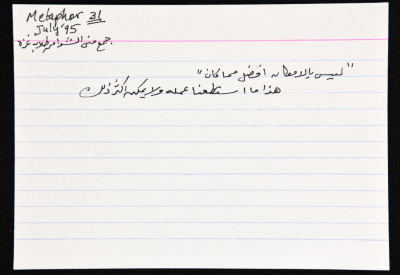 Metaphor 31
July '95
جمع منى الشوا من طلاب غزة
"ليس بالامكان افضل مما كان"
هذا ما استطعنا عمله ولا يمكن اكثر من ذلك